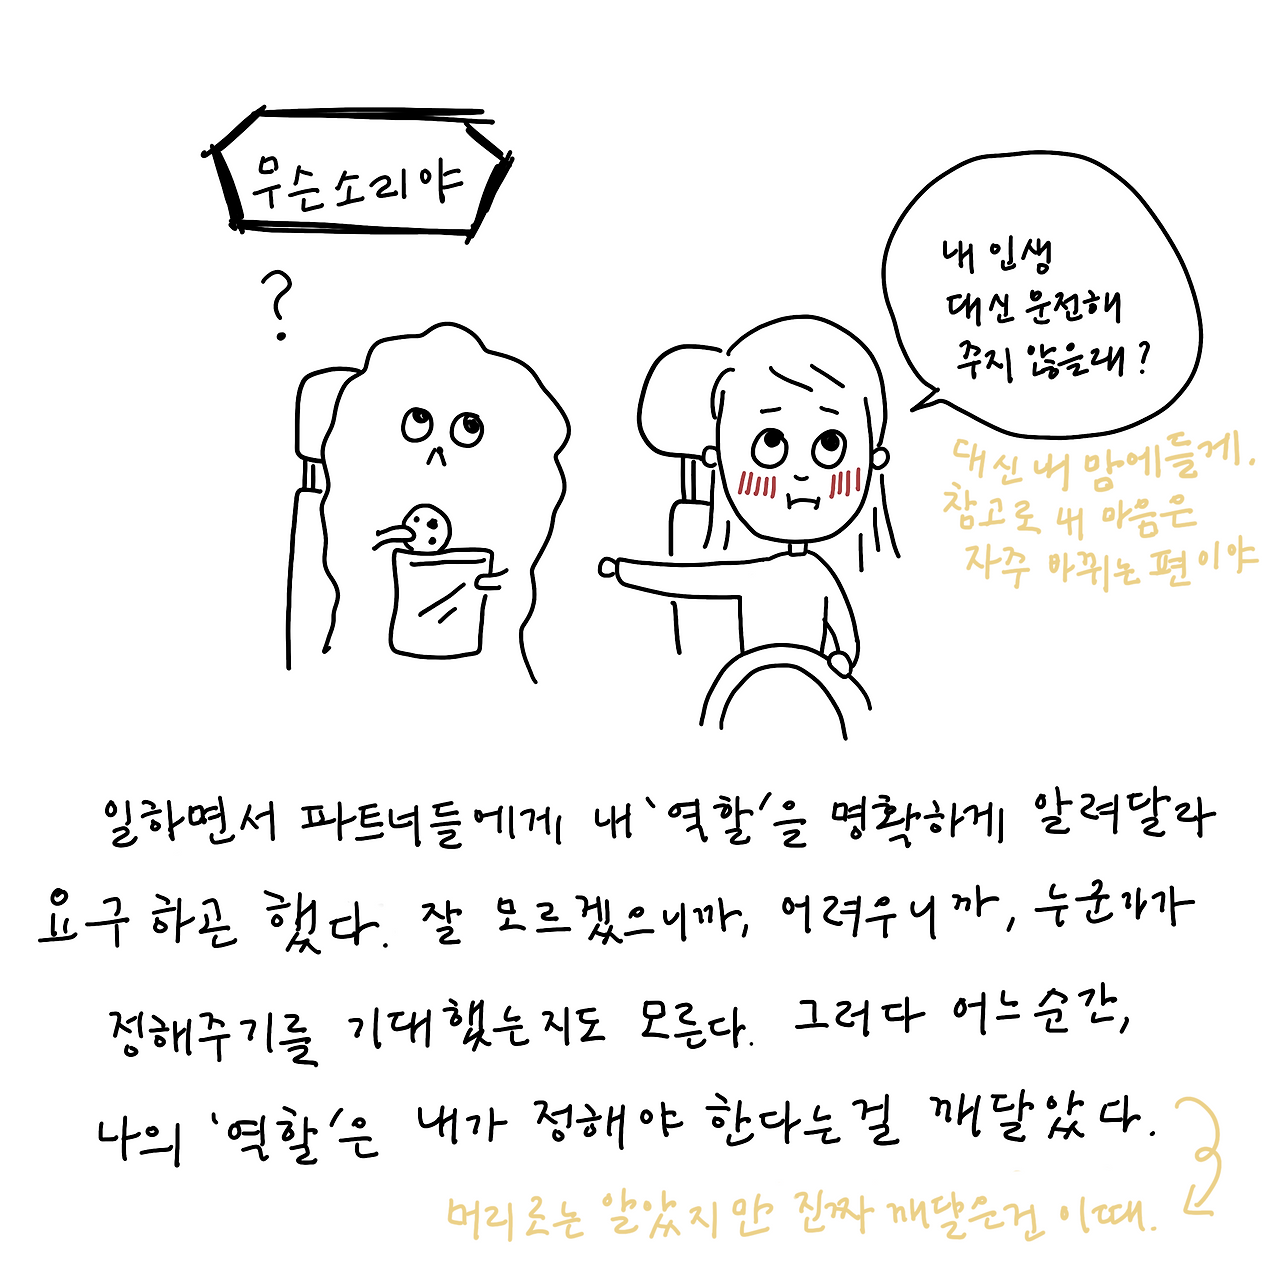 무슨소리야
?
내 인생
대신 운전해
주지 않을래?
대신 내 맘에들게.
참고로 내 마음은
자주 바뀌는 편이야
일하면서 파트너들에게 내 '역할'을 명확하게 알려달라
요구 하곤 했다. 잘 모르겠으니까, 어려우니까, 누군가가
정해주기를 기대했는지도 모른다. 그러다 어느순간,
나의 '역할'은 내가 정해야 한다는걸 깨달았다.
머리로는 알았지만 진짜 깨달은건 이때.